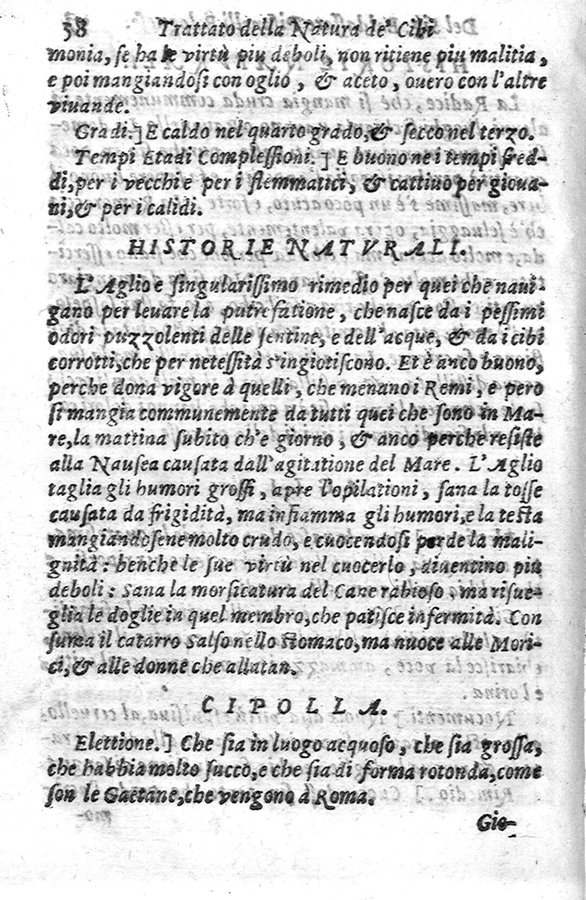 58 Trattato della Natura de' Cibi
monia, se ha le virtù piu deboli, non ritiene piu malitia,
e poi mangiandosi con oglio, & aceto, ouero con l'altre
viuande.
Gradi.] E caldo nel quarto grado, & secco nel terzo.
Tempi Etadi Complessioni.] E buono ne i tempi fred-
di, per i vecchi e per i flemmatici, & cattino per gioua-
ni, & per i calidi.
HISTORIE NATVRALI.
L'Aglio e singularissimo rimedio per quei che naui-
gano per leuare la putrefatione, che nasce da i pessimi
odori puzzolenti delle sentine, e dell'acque, & da i cibi
corrotti, che per netessità s'ingiotiscono. Et è anco buono,
perche dona vigore à quelli, che menano i Remi, e pero
si mangia communemente da tutti quei che sono in Ma-
re, la mattina subito ch'e giorno, & anco perche resiste
alla Nausea causata dall'agitatione del Mare. L'Aglio
taglia gli humori grossi, apre l'opilationi, sana la tosse
causata da frigidità, ma infiamma gli humori, e la testa
mangiandosene molto crudo, e cuocendosi perde la mali-
gnità: benche le sue virtù nel cuocerlo, diuentino più
deboli: Sana la morsicatura del Cane rabioso, ma risue-
glia le doglie in quel membro, che patisce infermità. Con
suma il catarro Salso nello stomaco, ma nuoce alle Mori-
ci, & alle donne che allatan.
CIPOLLA.
Elettione.] Che sia in luogo acquoso, che sia grossa,
che habbia molto succo, e che sia di forma rotonda, come
son le Gaetane, che vengono à Roma.
Gio-